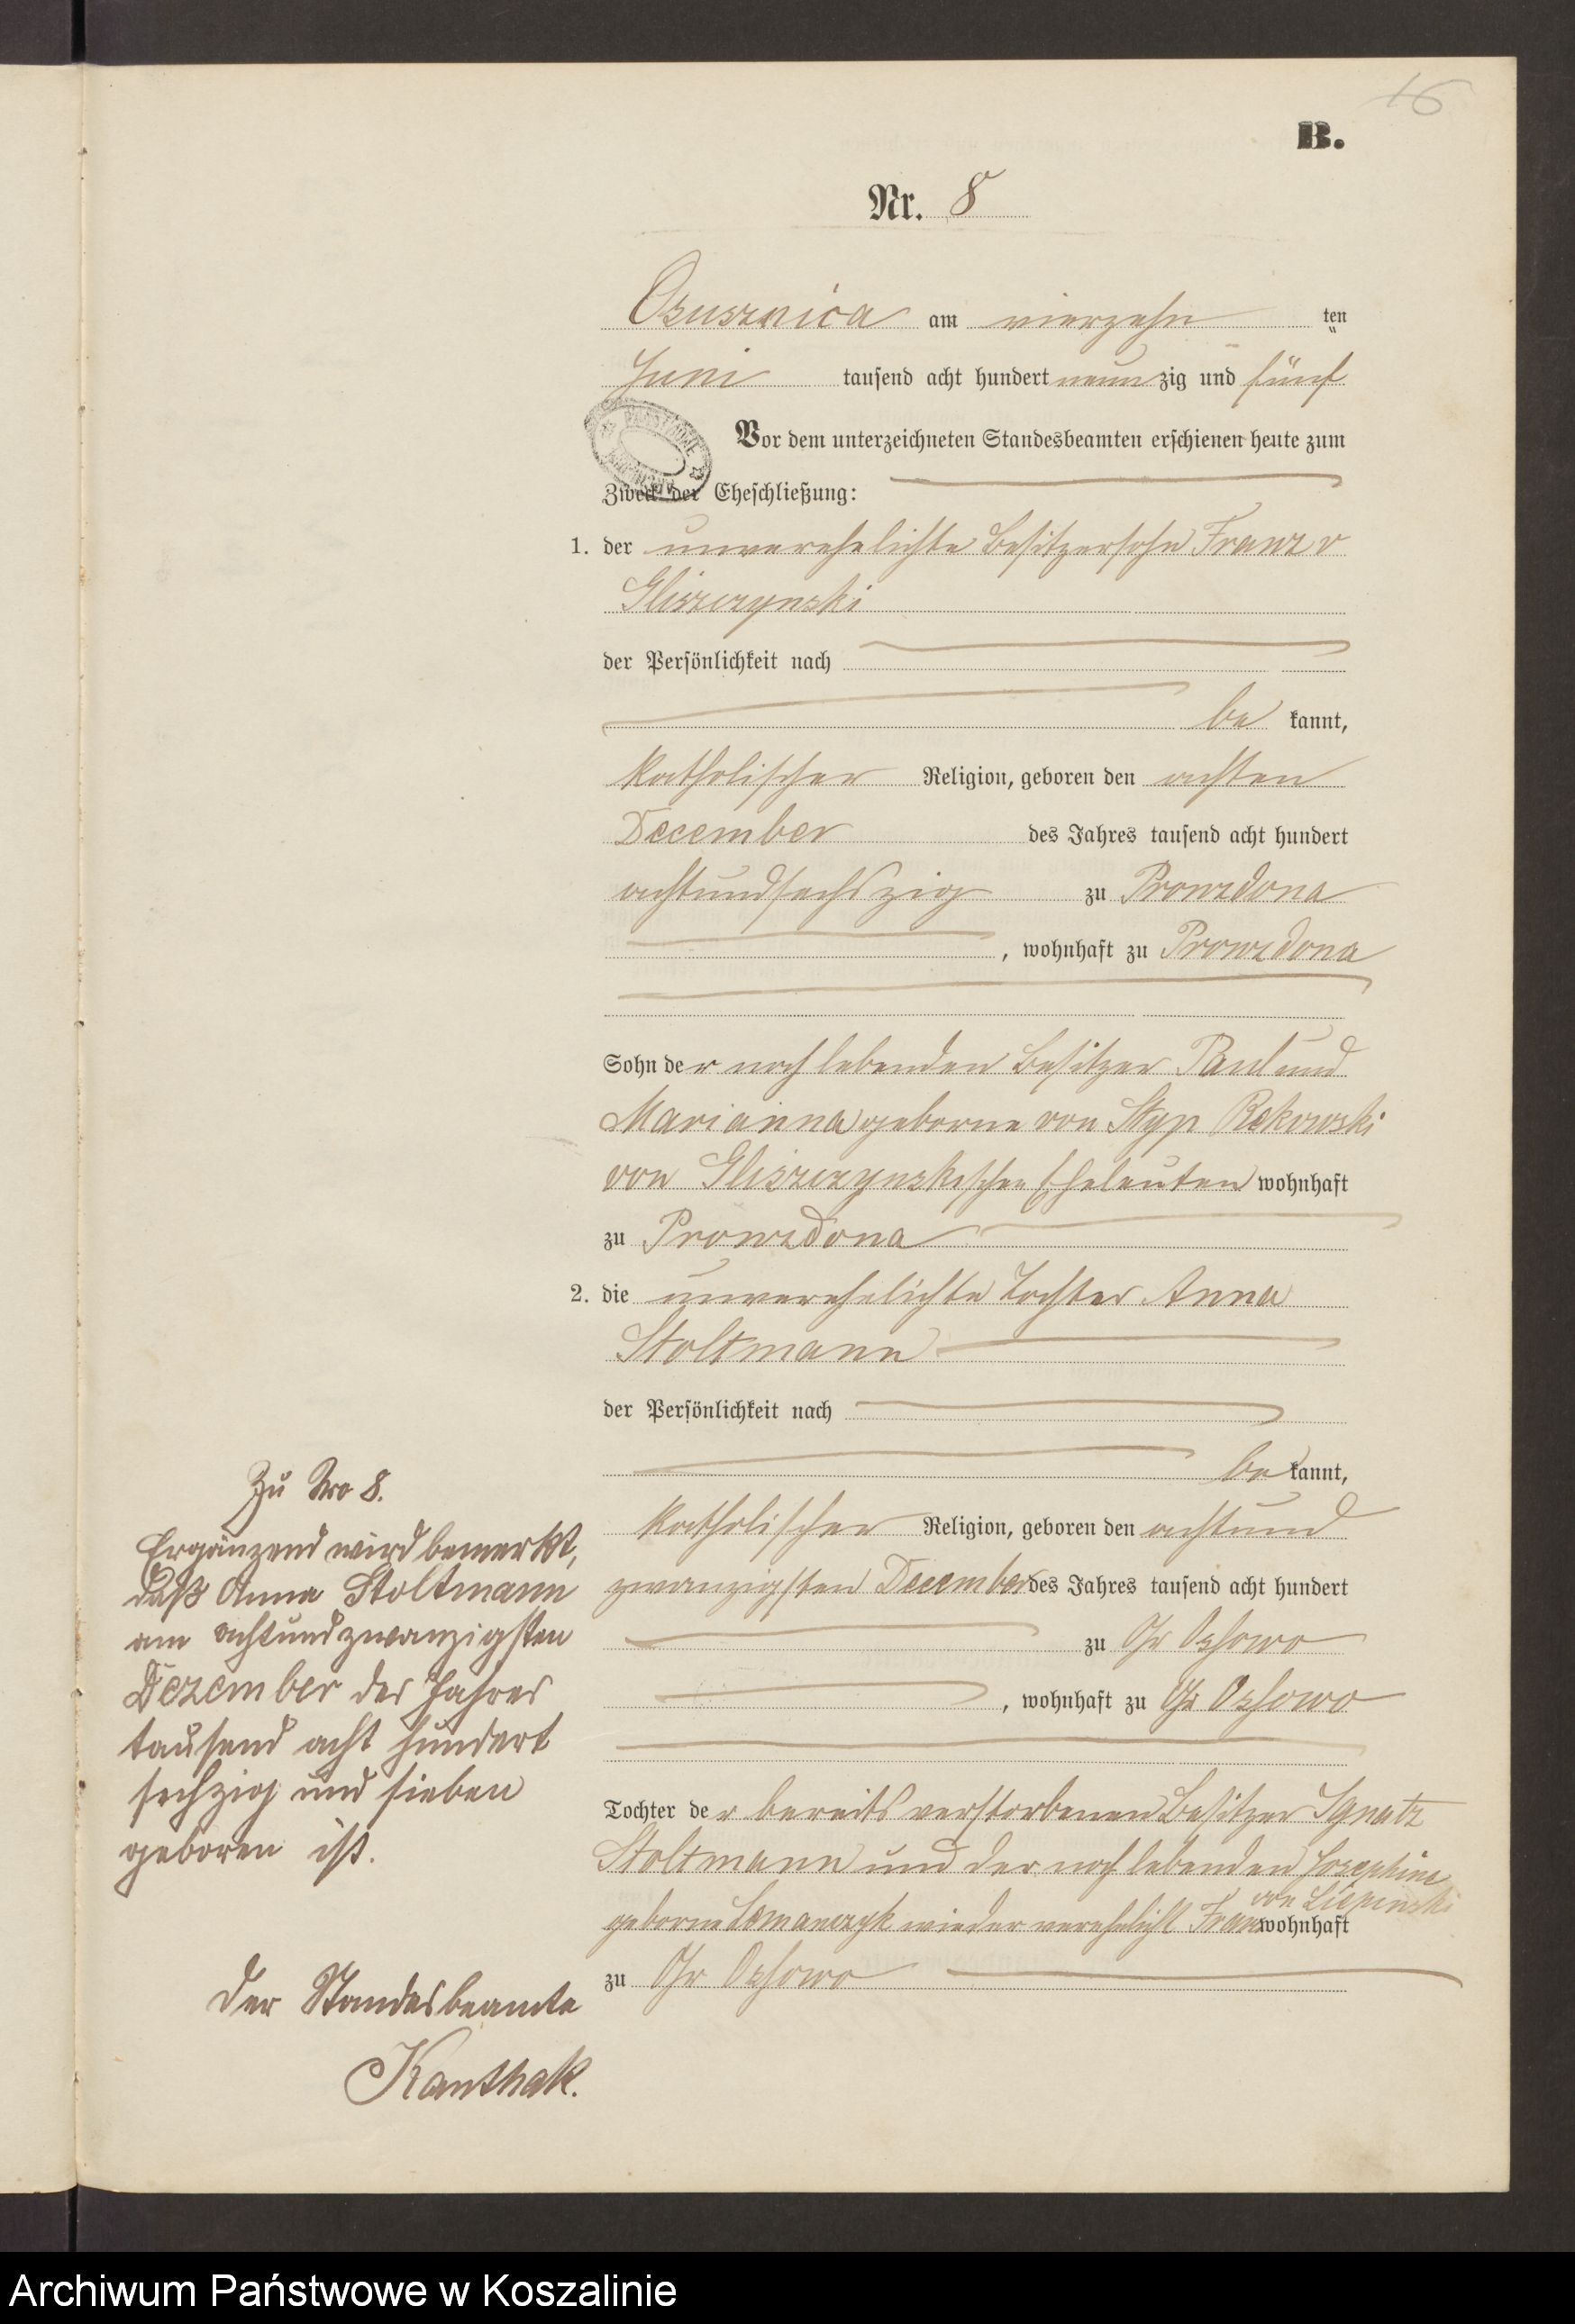 16
B.
Nr. 8
Osusznica am vierzehn ten
Juni tausend acht hundert neun zig und fünf
Vor dem unterzeichneten Standesbeamten erschienen heute zum
Zweck der Eheschließung:
1. der unverehelichte Besitzersohn Franz v
Gliszczynski
der Persönlichkeit nach
be kannt,
katholischer Religion, geboren den achten
December des Jahres tausend acht hundert
achtundsechszig zu Prondzona
, wohnhaft zu Prondzona
Sohn der noch lebenden Besitzer Paul und
Marianna geborne von Styp Rekowski
von Gliszczynskischen Eheleuten wohnhaft
zu Prondzona
2. die unverehelichte Tochter Anna
Stoltmann
der Persönlichkeit nach
be kannt,
katholischer Religion, geboren den achtund
zwanzigsten December des Jahres tausend acht hundert
zu Gr Ossowo
, wohnhaft zu Gr Ossowo
Tochter der bereits verstorbenen Besitzer Ignatz
Stoltmann und der noch lebenden Josephine
geborne Lemanczyk wieder verehelicht Franz von wohnhaft
zu Gr Ossowo
Zu Nro 8.
Ergänzend wird bemerkt,
daß Anna Stoltmann
am achtundzwanzigsten
Dezember des Jahres
tausend acht hundert
sechzig und sieben
geboren ist.
Der Standesbeamte
Kanthak.
Archiwum Państwowe w Koszalinie